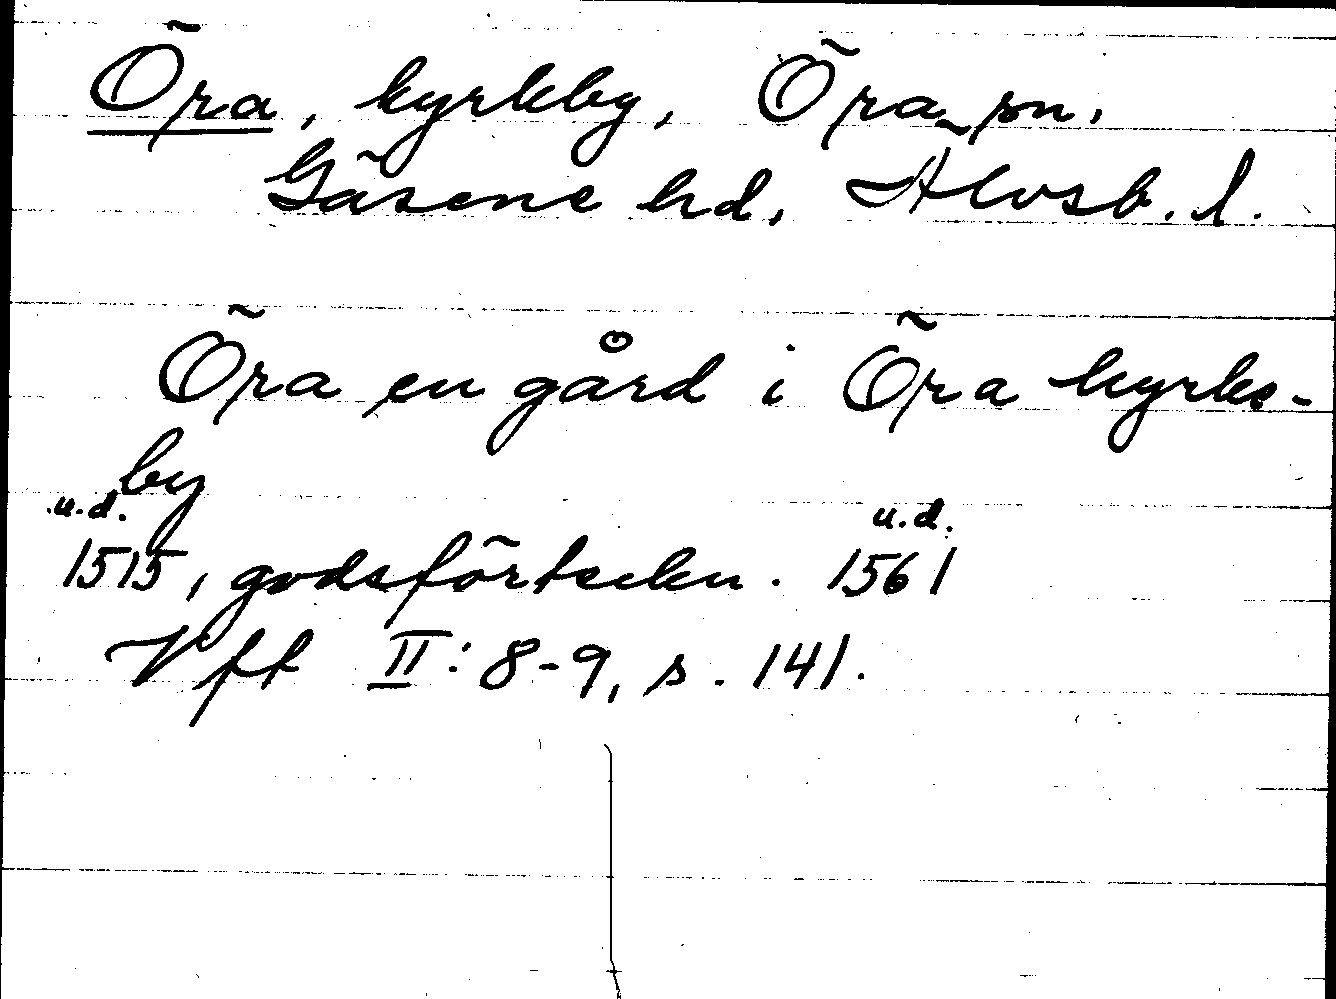 Öra, kyrkby, Öra sn,
Gäsene hd, Älvsb. l.
Öra en gård i Öra kyrke-
by
u.d. u.d.
1515, godsförteckn. 1561
Vft II: 8-9, s. 141.